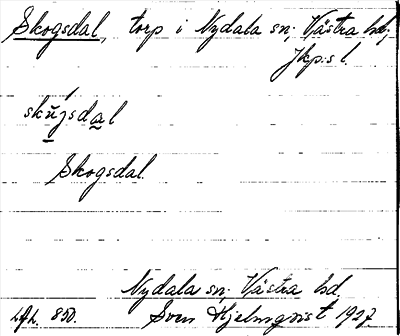 Skogsdal, torp i Nydala sn; Västra hd;
Jkp:s l.
skŭgsdal
Skogsdal.
Nydala sn; Västra hd.
850. Sven Hjelmqvist 1927